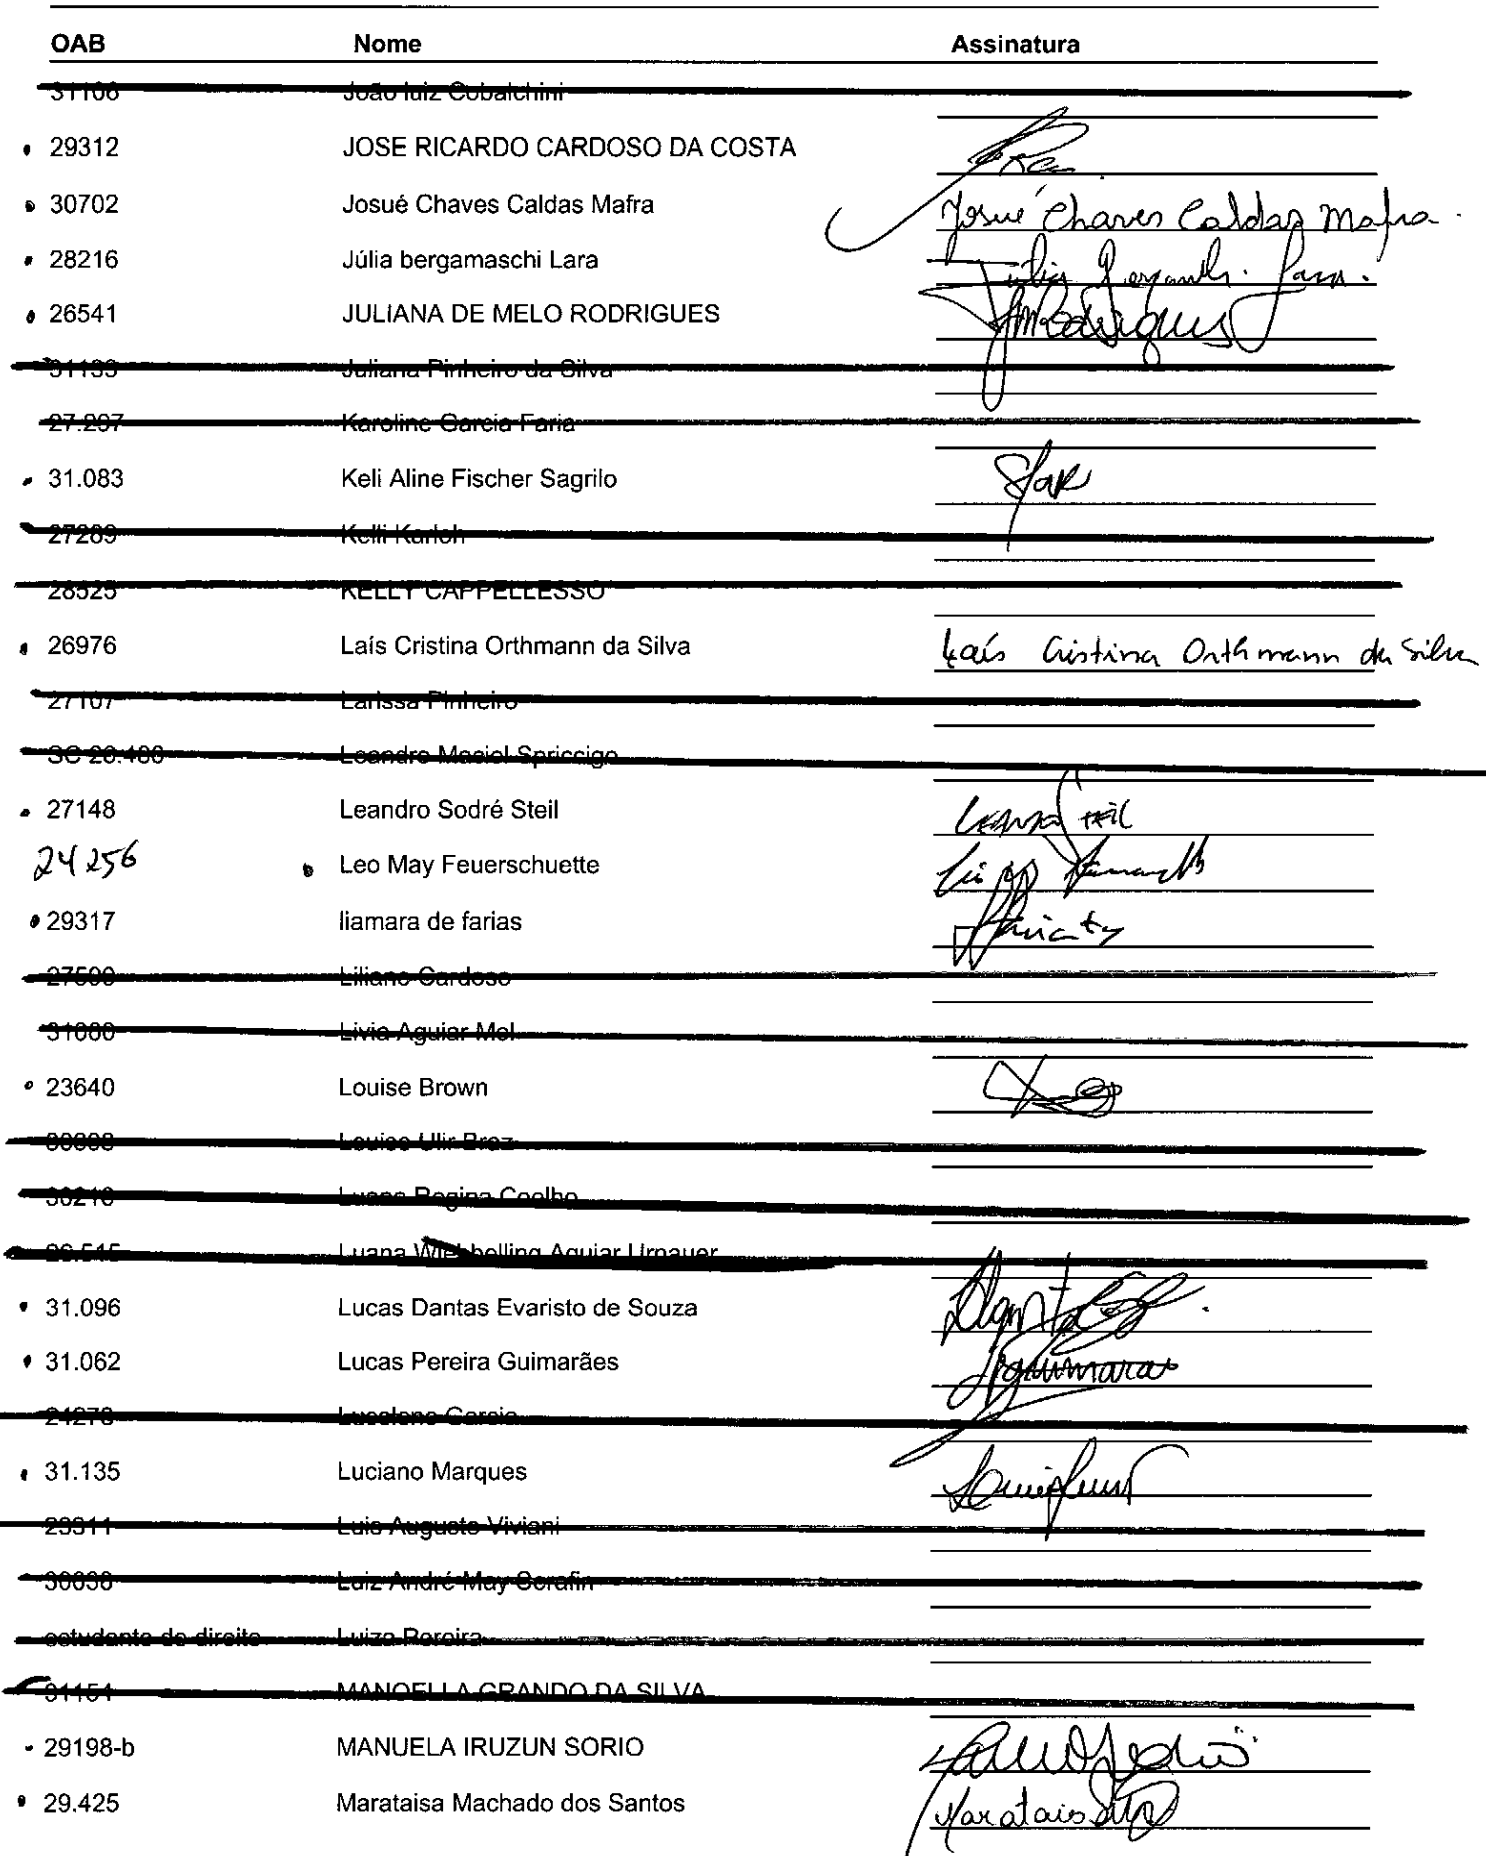 OAB Nome Assinatura
31106 João luiz Cobalchini
29312 JOSE RICARDO CARDOSO DA COSTA
30702 Josué Chaves Caldas Mafra Josué Chaves Caldas Mafra.
28216 Júlia bergamaschi Lara Júlia Lara.
26541 JULIANA DE MELO RODRIGUES JMRodrigues
31139 Juliana Pinheiro da Silva
27.297 Karoline Garcia Faria
31.083 Keli Aline Fischer Sagrilo
27289 Kelli Karloh
28525 KELLY CAPPELLESSO
26976 Laís Cristina Orthmann da Silva Laís Cristina Orthmann da Silva
27107 Larissa Pinheiro
SC Leandro Maciel Spriccigo
27148 Leandro Sodré Steil Leandro Steil
24256 Leo May Feuerschuette
29317 liamara de farias
Liliane Cardoso
Livia Aguiar Mol
23640 Louise Brown
Louise Ulir Braz
30210 Luana Regina Coelho
26.515 Luana Wiebbelling Aguiar Urnauer
31.096 Lucas Dantas Evaristo de Souza
31.062 Lucas Pereira Guimarães LPGuimaraes
24278 Garcia
31.135 Luciano Marques
23311 Luis Augusto Viviani
Luiz André May Serafin
estudante de direito Luiza Pereira
31151 MANOELLA GRANDO DA SILVA
29198-b MANUELA IRUZUN SORIO
29.425 Marataisa Machado dos Santos